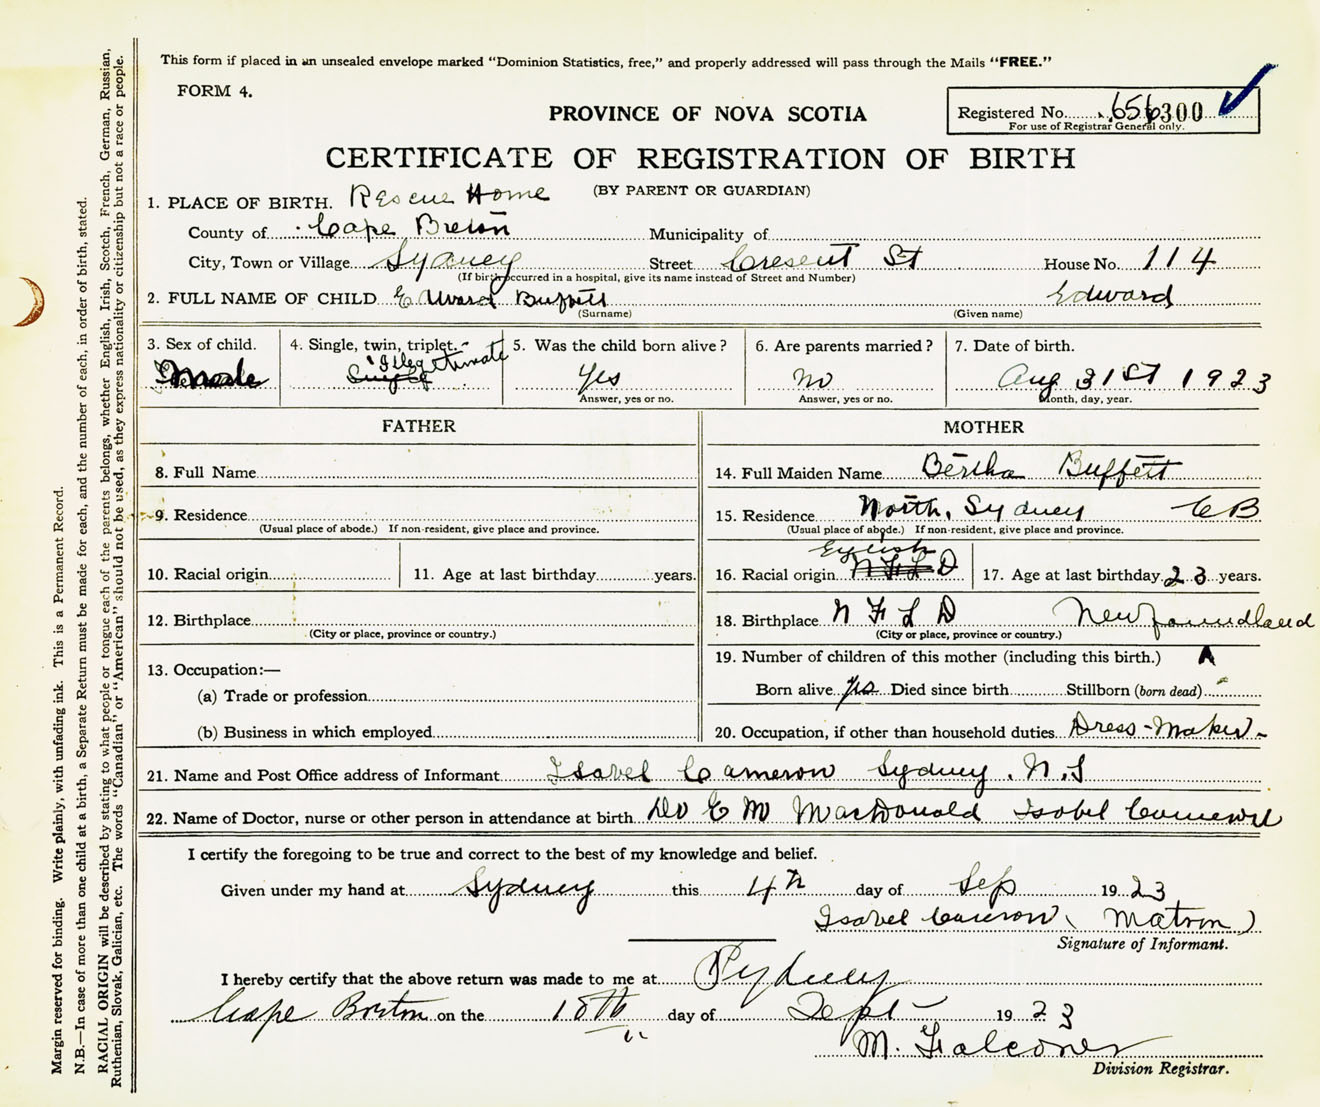 This form if placed in an unsealed envelope marked "Dominion Statistics, free," and properly addressed will pass through the Mails "FREE."
FORM 4.
PROVINCE OF NOVA SCOTIA
Registered No. 300
For use of Registrar General only.
CERTIFICATE OF REGISTRATION OF BIRTH
(BY PARENT OR GUARDIAN)
1. PLACE OF BIRTH. Rescue Home
County of Cape Breton Municipality of
City, Town or Village Sydney Street Cresent St House No. 114
(If birth occurred in a hospital, give its name instead of Street and Number)
2. FULL NAME OF CHILD Edward Buffett Edward
(Surname) (Given name)
3. Sex of child. 4. Single, twin, triplet. 5. Was the child born alive? 6. Are parents married? 7. Date of birth.
Male Illegitimate Single Yes No Aug 31st 1923
Answer, yes or no. Answer, yes or no. Month, day, year.
FATHER
8. Full Name
9. Residence
(Usual place of abode.) If non-resident, give place and province.
10. Racial origin 11. Age at last birthday years.
12. Birthplace
(City or place, province or country.)
13. Occupation:—
(a) Trade or profession
(b) Business in which employed
MOTHER
14. Full Maiden Name Bertha Buffett
15. Residence North, Sydney CB
(Usual place of abode.) If non-resident, give place and province.
English
16. Racial origin N F L D 17. Age at last birthday 23 years.
18. Birthplace N F L D Newfoundland
(City or place, province or country.)
19. Number of children of this mother (including this birth.)
Born alive yes Died since birth Stillborn (born dead)
20. Occupation, if other than household duties Dress-Maker-
21. Name and Post Office address of Informant Isabel Cameron Sydney. N.S
22. Name of Doctor, nurse or other person in attendance at birth Dr E M MacDonald Isobel Cameron
I certify the foregoing to be true and correct to the best of my knowledge and belief.
Given under my hand at Sydney this 4th day of Sep 1923
Isabel Cameron (Matron)
Signature of Informant.
I hereby certify that the above return was made to me at Sydney
Cape Breton on the 18th day of Sept 1923
M. Falconer
Division Registrar.
Margin reserved for binding. Write plainly, with unfading ink. This is a Permanent Record.
N.B.—In case of more than one child at a birth, a Separate Return must be made for each, and the number of each, in order of birth, stated.
RACIAL ORIGIN will be described by stating to what people or tongue each of the parents belongs, whether English, Irish, Scotch, French, German, Russian,
Ruthenian, Slovak, Galician, etc. The words "Canadian" or "American" should not be used, as they express nationality or citizenship but not a race or people.